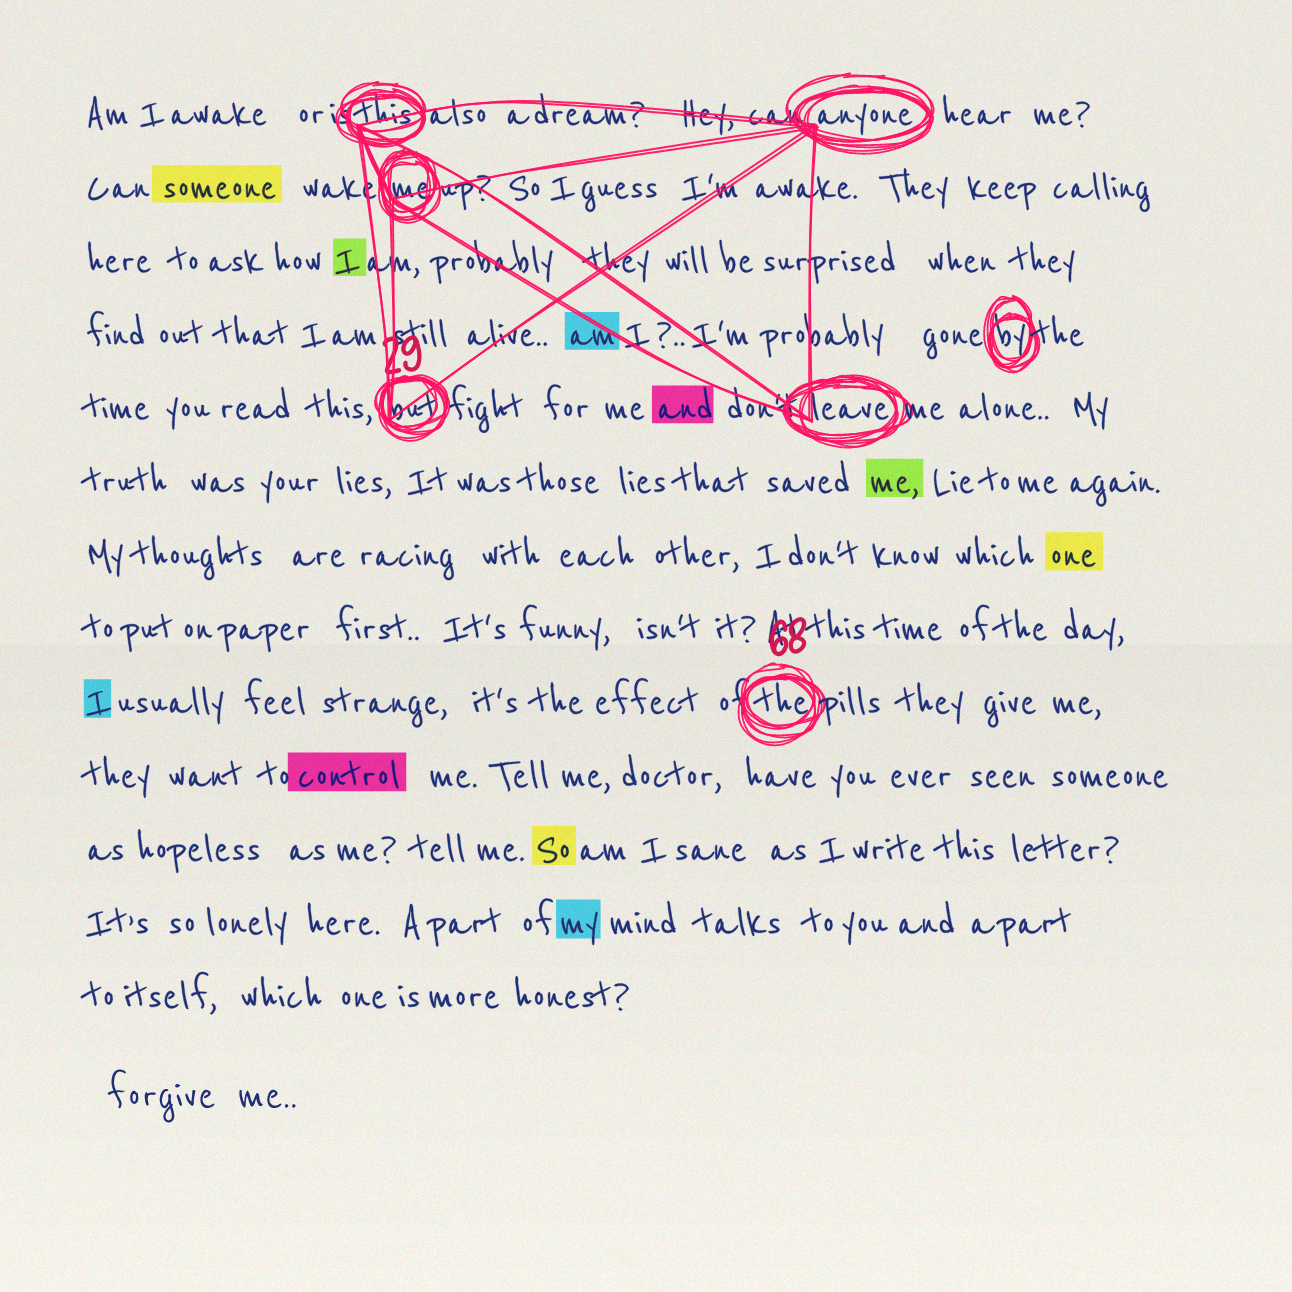 Am I awake or is this also a dream? Hey, can anyone hear me?
Can someone wake me up? So I guess I'm awake. They keep calling
here to ask how I am, probably they will be surprised when they
find out that I am still alive.. am I?.. I'm probably gone by the
29
time you read this, but fight for me and don't leave me alone.. My
truth was your lies, It was those lies that saved me, Lie to me again.
My thoughts are racing with each other, I don't know which one
to put on paper first.. It's funny, isn't it? At this time of the day,
68
I usually feel strange, it's the effect of the pills they give me,
they want to control me. Tell me, doctor, have you ever seen someone
as hopeless as me? tell me. So am I sane as I write this letter?
It's so lonely here. A part of my mind talks to you and a part
to itself, which one is more honest?
forgive me..